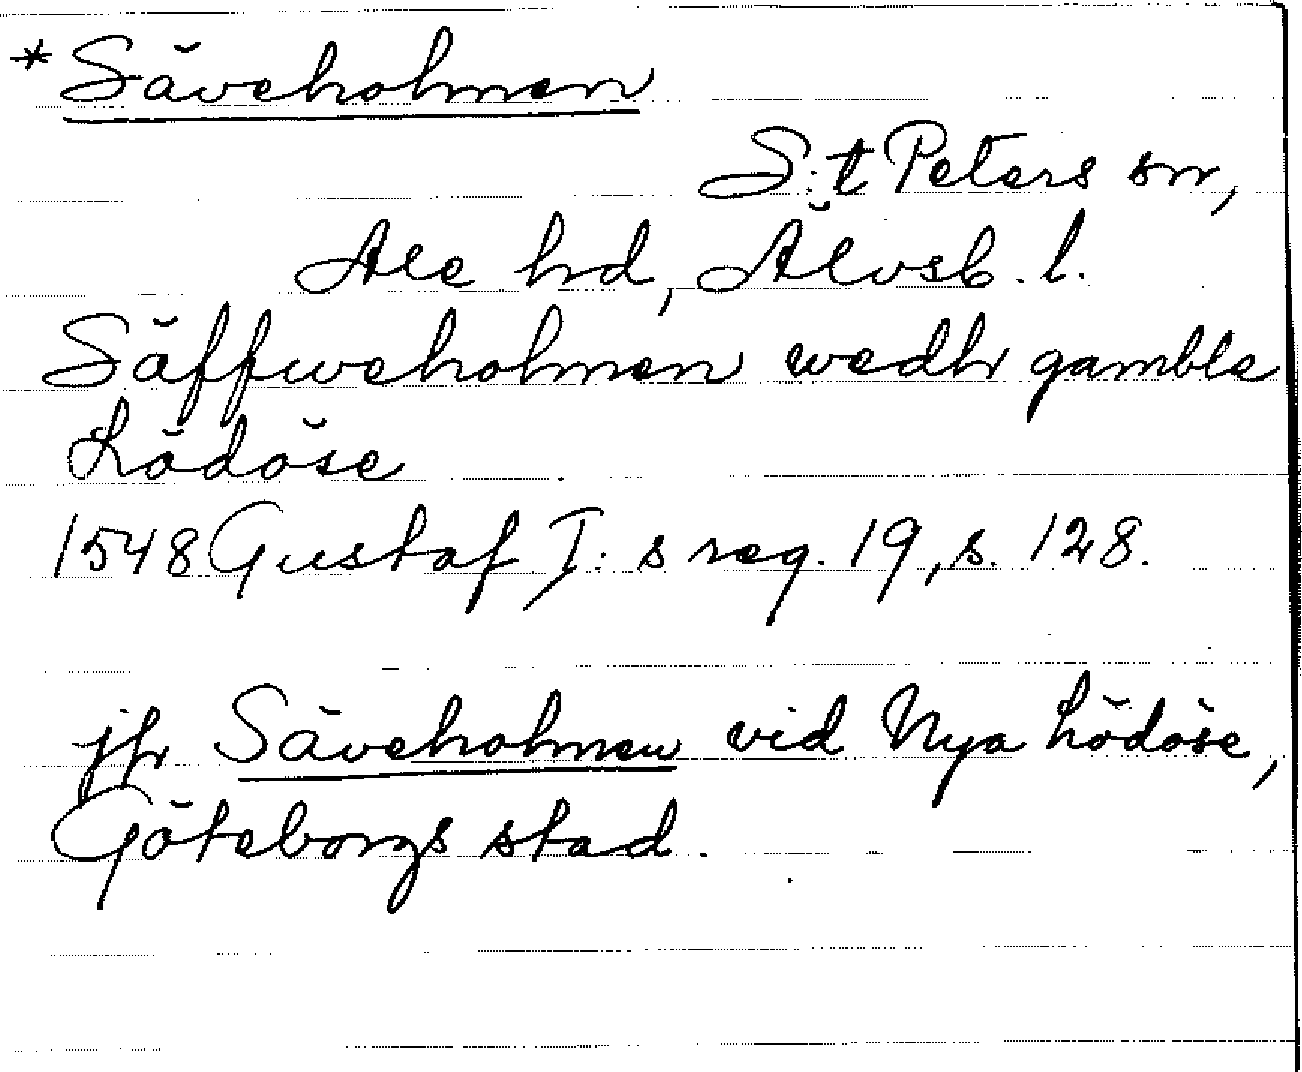 *Säveholmen
S:t Peters sn,
Ale hd, Älvsb. l.
Säffweholmen wedhr gamble
Lödöse
1548 Gustaf I:s reg. 19, s. 128.
jfr Säveholmen vid Nya Lödöse,
Göteborgs stad.